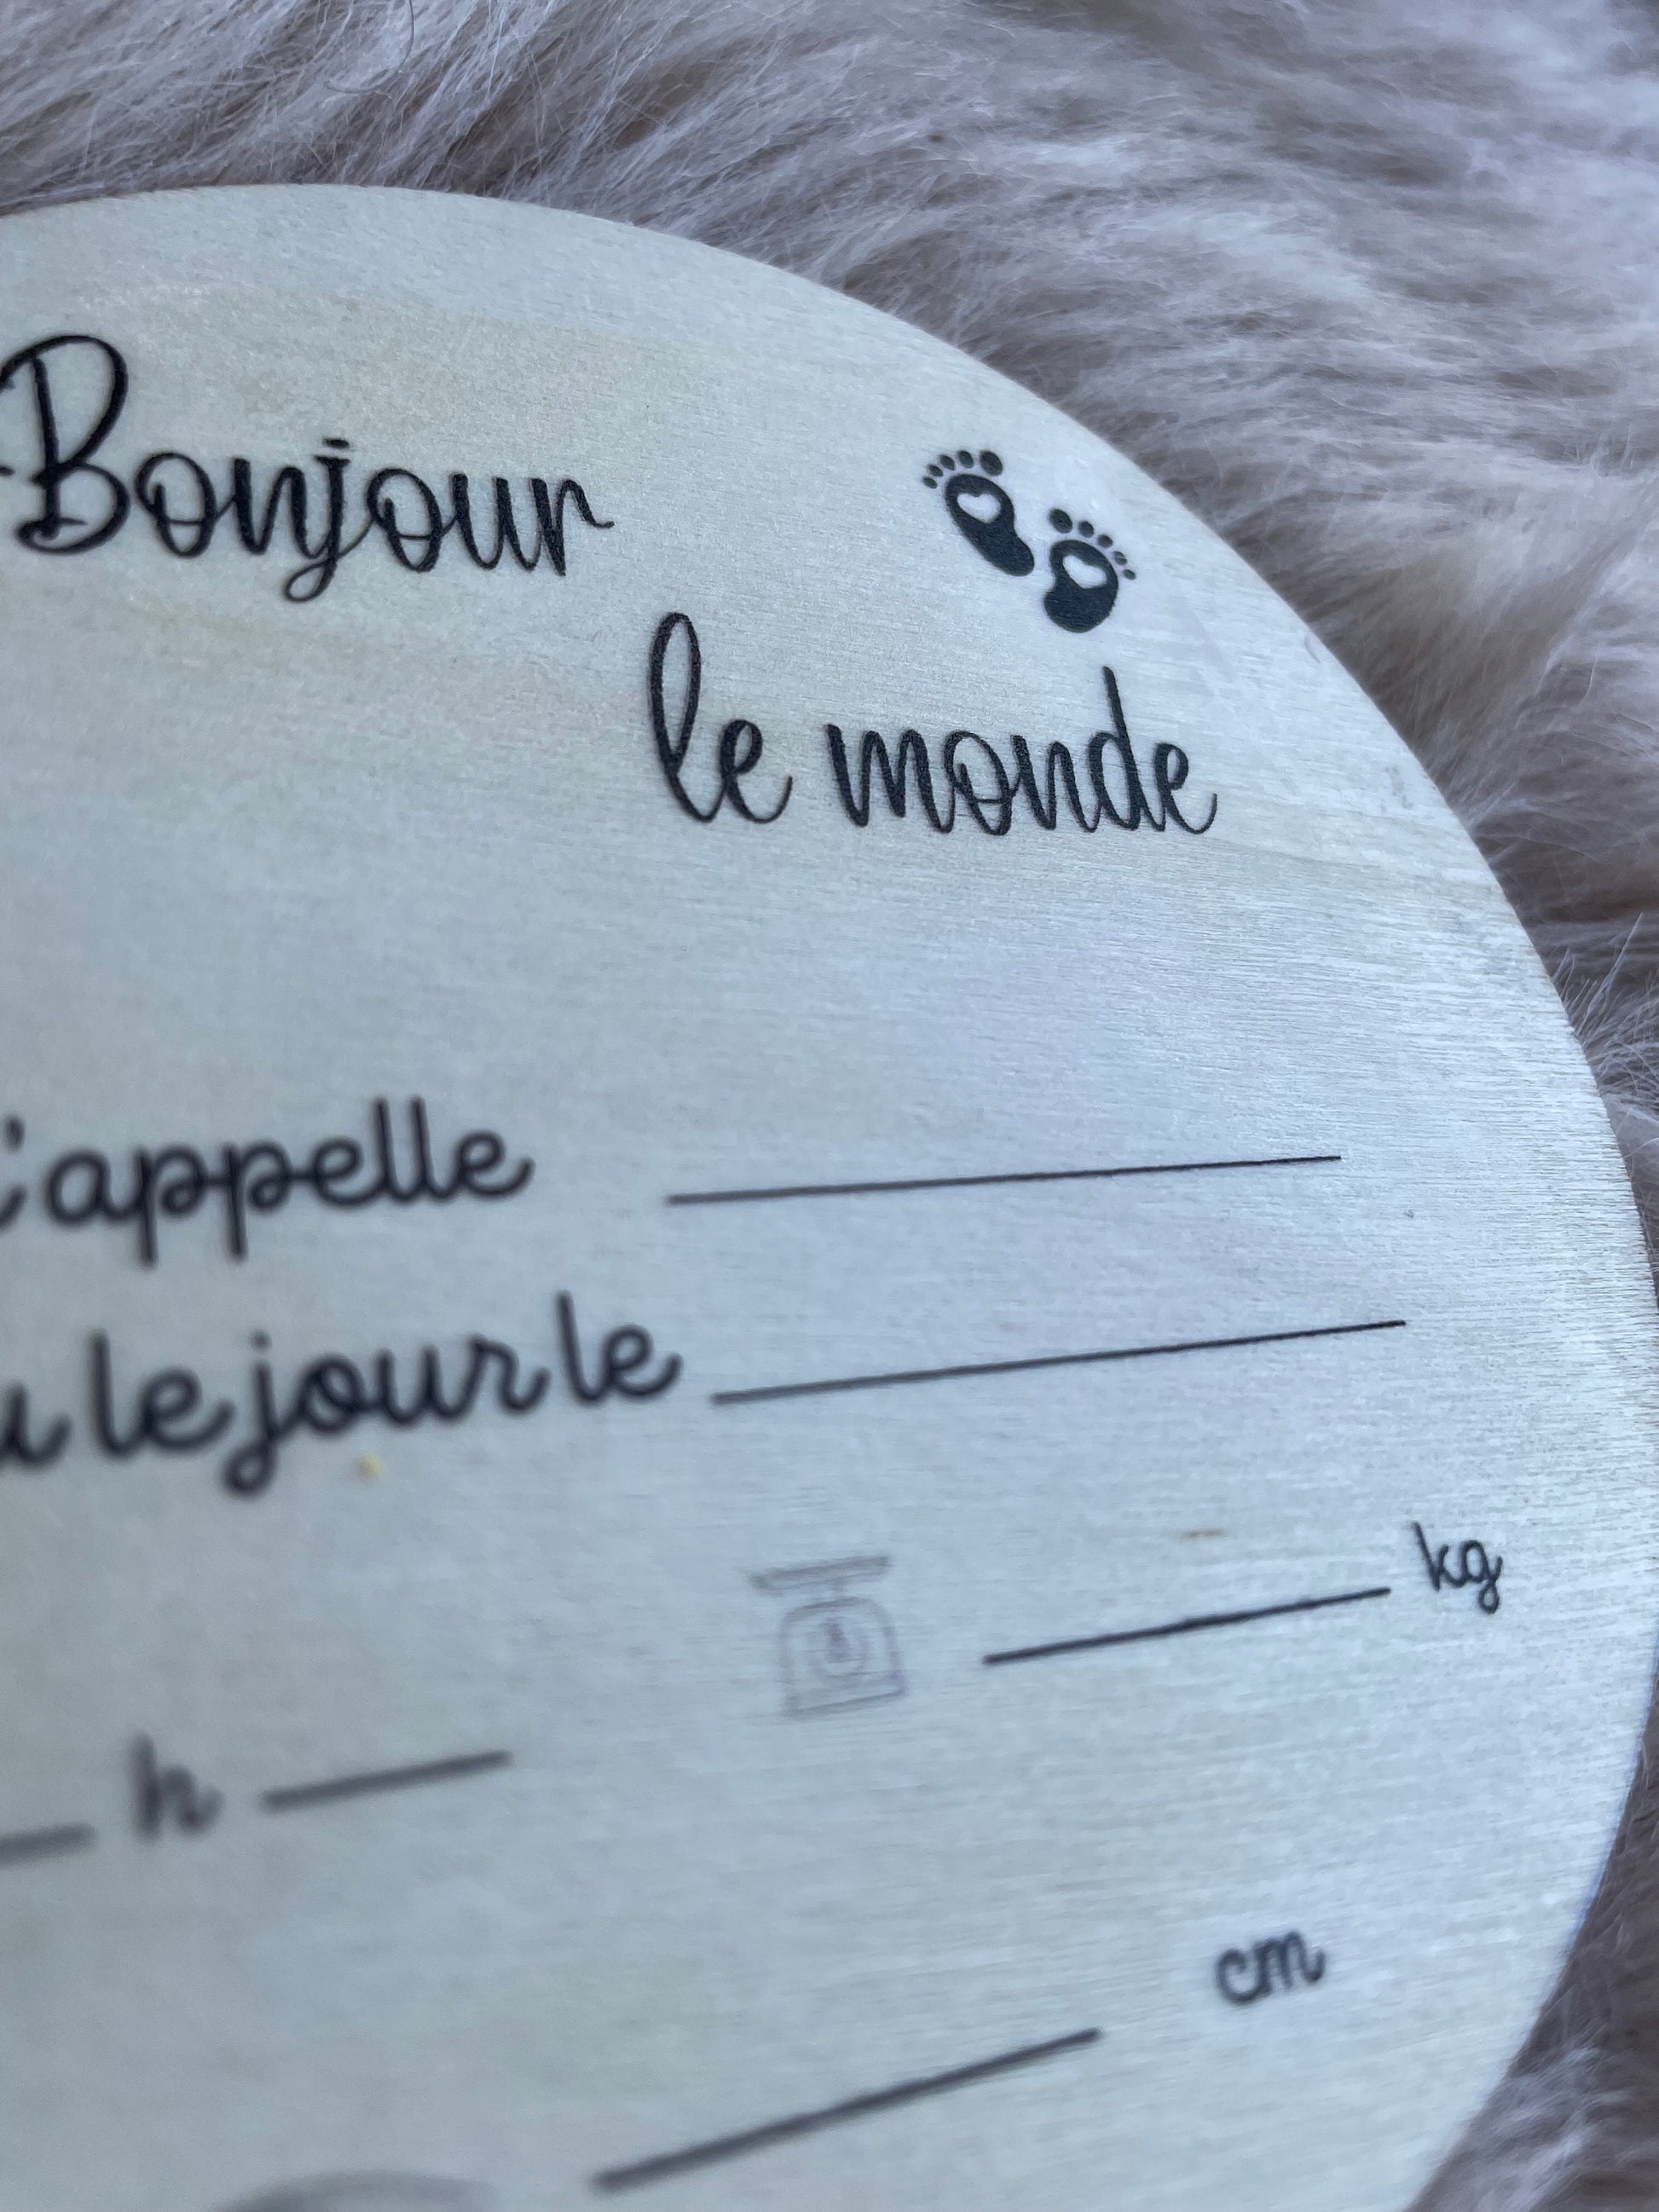 Bonjour
le monde
'appelle
u le jour le
kg
h
cm